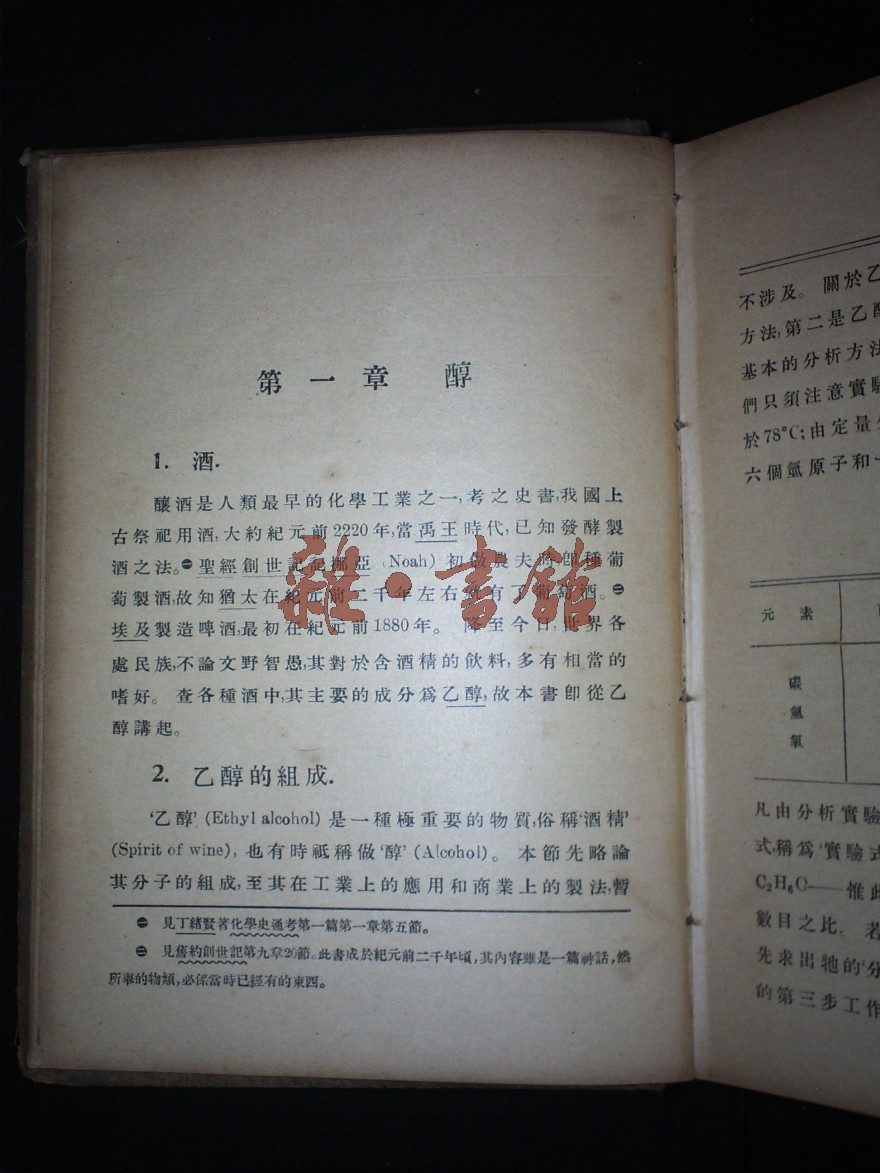 第一章 醇
1. 酒.
釀酒是人類最早的化學工業之一,考之史書,我國上
古祭祀用酒,大約紀元前2220年,當禹王時代,已知發酵製
酒之法。㊀聖經創世記記挪亞 (Noah) 初做農夫時卽種葡
萄製酒,故知猶太在紀元前二千年左右就有了葡萄酒。㊁
埃及製造啤酒,最初在紀元前1880年。 降至今日,世界各
處民族,不論文野智愚,其對於含酒精的飲料,多有相當的
嗜好。 查各種酒中,其主要的成分爲乙醇,故本書卽從乙
醇講起。
2. 乙醇的組成.
'乙醇' (Ethyl alcohol) 是一種極重要的物質,俗稱'酒精'
(Spirit of wine), 也有時祇稱做'醇' (Alcohol)。 本節先略論
其分子的組成,至其在工業上的應用和商業上的製法,暫
㊀ 見丁緒賢著化學史通考第一篇第一章第五節。
㊁ 見舊約創世記第九章20節。此書成於紀元前二千年頃,其內容雖是一篇神話,然
所舉的物類,必係當時已經有的東西。
雜·書館
不涉及。 關於乙
方法,第二是乙
基本的分析方法
們只須注意實驗
於78°C;由定量
六個氫原子和一
元素
碳
氫
氧
凡由分析實驗
式,稱爲'實驗式
C₂H₆O——惟此
數目之比。 若
先求出牠的'分
的第三步工作